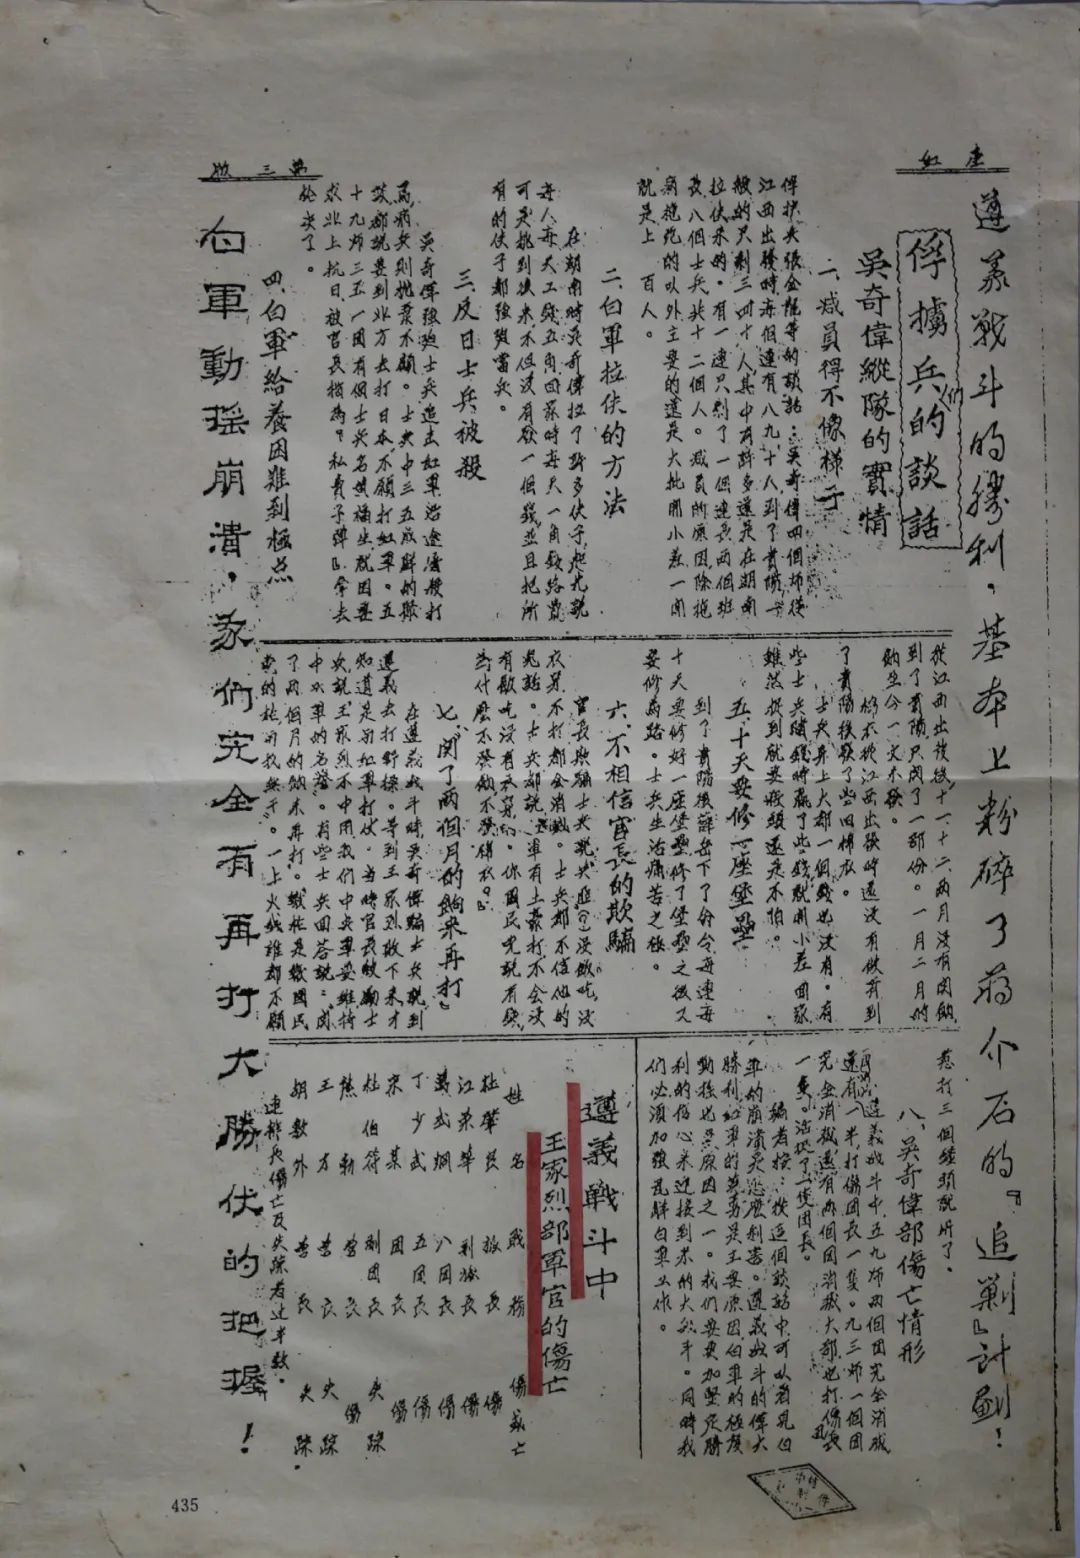 紅星
第三版
遵義戰斗的勝利，基本上粉碎了蔣介石的『追剿』計劃！
俘擄兵們的談話
吳奇偉縱隊的實情
一、减員得不像樣子
俘擄兵張金龍等的談話：吳奇偉四個師從
江西出發時每個連有八九十人到了貴陽一
般的只剩三四十人其中有許多還是在湖南
拉伕來的。有一連只剩了一個連長兩個班
長八個士兵共十二個人。减員的原因除拖
病拖死的以外主要的還是大批開小差一開
就是上百人。
二、白軍拉伕的方法
在湖南時吳奇偉拉了許多伕子，起先說
每人每天工錢五角回家時每天一角錢路費
可是挑到後來不但沒有發一個錢並且把所
有的伕子都強迫當兵。
三、反日士兵被殺
吳奇偉強迫士兵追击紅軍沿途凌殺打
罵病兵則拋棄不顧。士兵中三五成群的聚
談都說要到北方去打日本，不願打紅軍。五
十九師三五一團有個士兵名黃福生就因要
求北上抗日，被官長指為『私賣子彈』拿去
枪决了。
四、白軍給養困難到極点
從江西出發後，十一、十二兩月没有關餉，
到了貴陽只關了一部份。一月二月的
餉至今一文未發。
棉衣從江西出發時還没有俱齊到
了貴陽後發了些旧棉衣。
士兵身上大都一個錢也没有。有
些士兵賭錢時贏了些錢就開小差回家
雖然捉到就要殺頭還是不怕。
五、十天要修一座堡壘
到了貴陽後薛岳下了命令，每連每
十天要修好一座堡壘，修了堡壘之後又
要修馬路。士兵生活痛苦之極。
六、不相信官長的欺騙
官長欺騙士兵說共匪（？）没飯吃，没
衣穿不打都会消滅。士兵都不信他的
鬼話。士兵都說：『紅軍有土豪打不会没
有飯吃没有衣穿的。你國民党說有錢
為什麼不發餉不發棉衣。』
七、『関了兩個月的餉來再打』
在遵義战斗時，吳奇偉騙士兵說到
遵義去打野操。等到王家烈敗下來才
知道是與紅軍打仗。当時官長鼓勵士
兵說，王家烈不中用，我們中央軍要維持
中央軍的名譽。有些士兵回答說：『関
了兩個月的餉來再打。鐵桩是發國民
党的桩，可找無子』。一上火线誰都不願
惹打三個鐘頭就所了。
八、吳奇偉部傷亡情形
遵義战斗中，五九師兩個团完全消滅
還有一半，打傷团長一隻。九三師一個团
完全消滅還有兩個团消滅大部也打傷团長
一隻。活捉了一隻团長。
編者按：從這個談話中，可以看見白
軍的崩潰是怎麼利害。遵義战斗的偉大
勝利，紅軍的英勇是主要原因，白軍的極度
動搖也是原因之一。我們要更加堅定勝
利的信心來迎接到來的大战斗。同時我
們必須加強瓦解白軍工作。
遵義戰斗中
王家烈部軍官的傷亡
姓名 職務 傷或亡
杜肇華 旅長 傷
江荣華 副旅長 傷
萬式烱 八团長 傷
丁少武 五团長 傷
宋某 团長 傷
杜伯符 副团長 失踪
焦勃 营長 傷
王方 营長 失踪
胡數外 营長 失踪。
連排長傷亡及失踪者过半数。
白軍動摇崩潰，我們完全有再打大勝仗的把握！
435